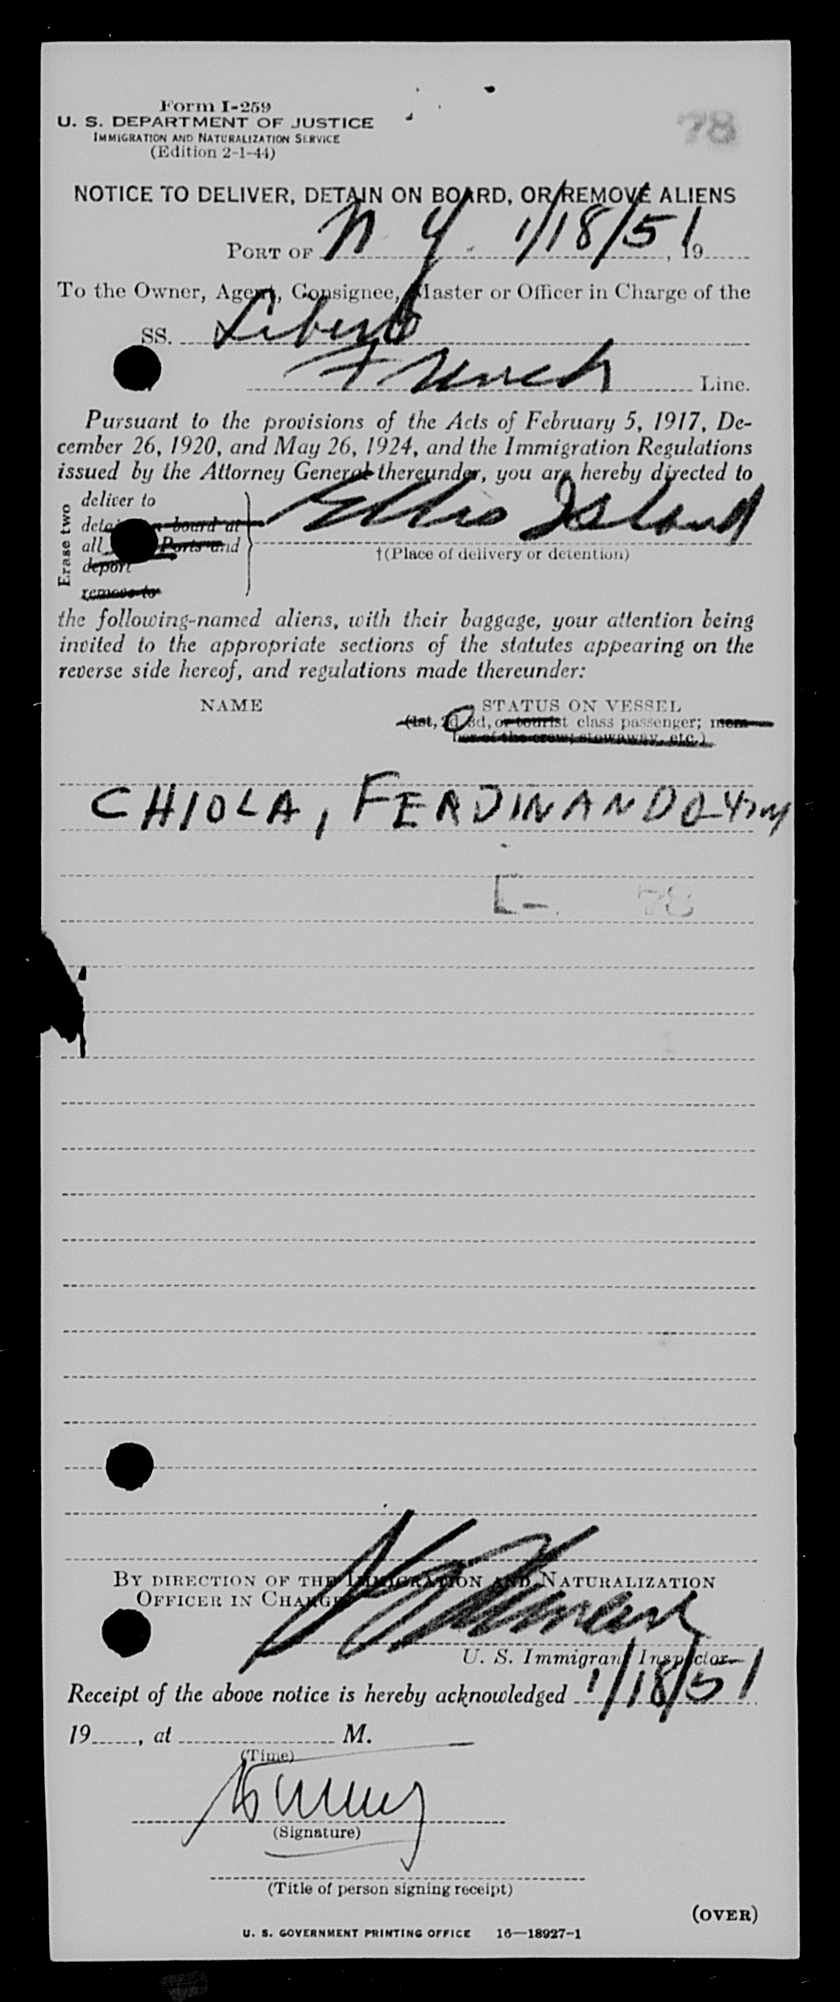 Form I-259
U. S. DEPARTMENT OF JUSTICE
IMMIGRATION AND NATURALIZATION SERVICE
(Edition 2-1-44)
78
NOTICE TO DELIVER, DETAIN ON BOARD, OR REMOVE ALIENS
PORT OF N.Y. 1/18/51, 19
To the Owner, Agent, Consignee, Master or Officer in Charge of the
SS. Liberté
French Line.
Pursuant to the provisions of the Acts of February 5, 1917, De-
cember 26, 1920, and May 26, 1924, and the Immigration Regulations
issued by the Attorney General thereunder, you are hereby directed to
Erase two
deliver to
detain on board at
all Ports and
deport
remove to
Ellis Island
†(Place of delivery or detention)
the following-named aliens, with their baggage, your attention being
invited to the appropriate sections of the statutes appearing on the
reverse side hereof, and regulations made thereunder:
NAME STATUS ON VESSEL
(1st, 2d, 3d, or tourist class passenger; mem-
ber of the crew; stowaway, etc.)
CHIOLA, FERDINANDO
78
BY DIRECTION OF THE IMMIGRATION AND NATURALIZATION
OFFICER IN CHARGE
U. S. Immigrant Inspector
Receipt of the above notice is hereby acknowledged 1/18/51
19, at M.
(Time)
(Signature)
(Title of person signing receipt)
(OVER)
U. S. GOVERNMENT PRINTING OFFICE 16—18927-1